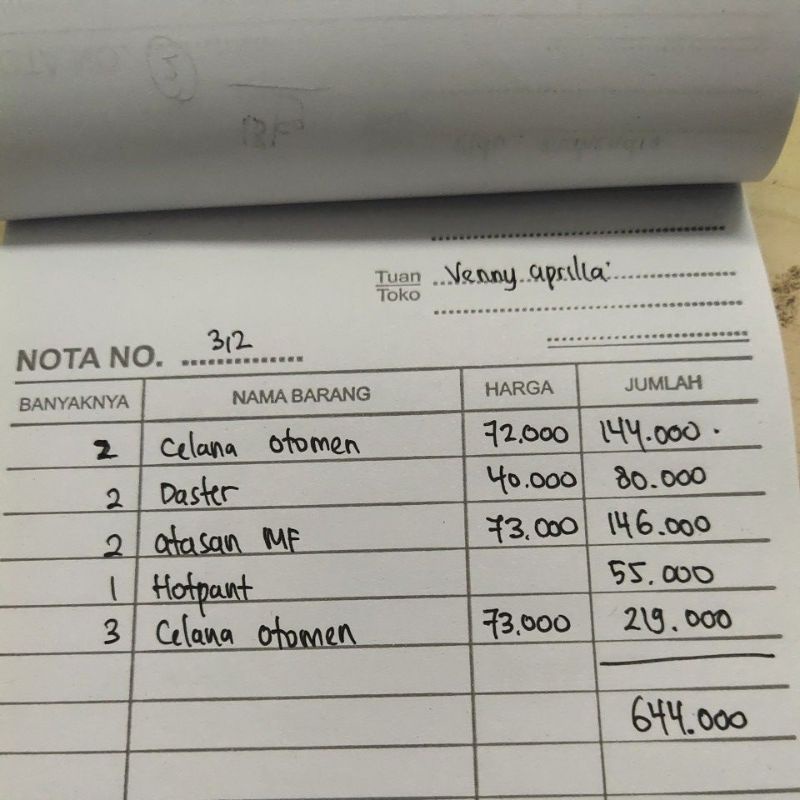 Tuan Venny aprilla
Toko
NOTA NO. 312
BANYAKNYA NAMA BARANG HARGA JUMLAH
2 Celana otomen 72.000 144.000
2 Daster 40.000 80.000
2 atasan MF 73.000 146.000
1 Hotpant 55.000
3 Celana otomen 73.000 219.000
644.000